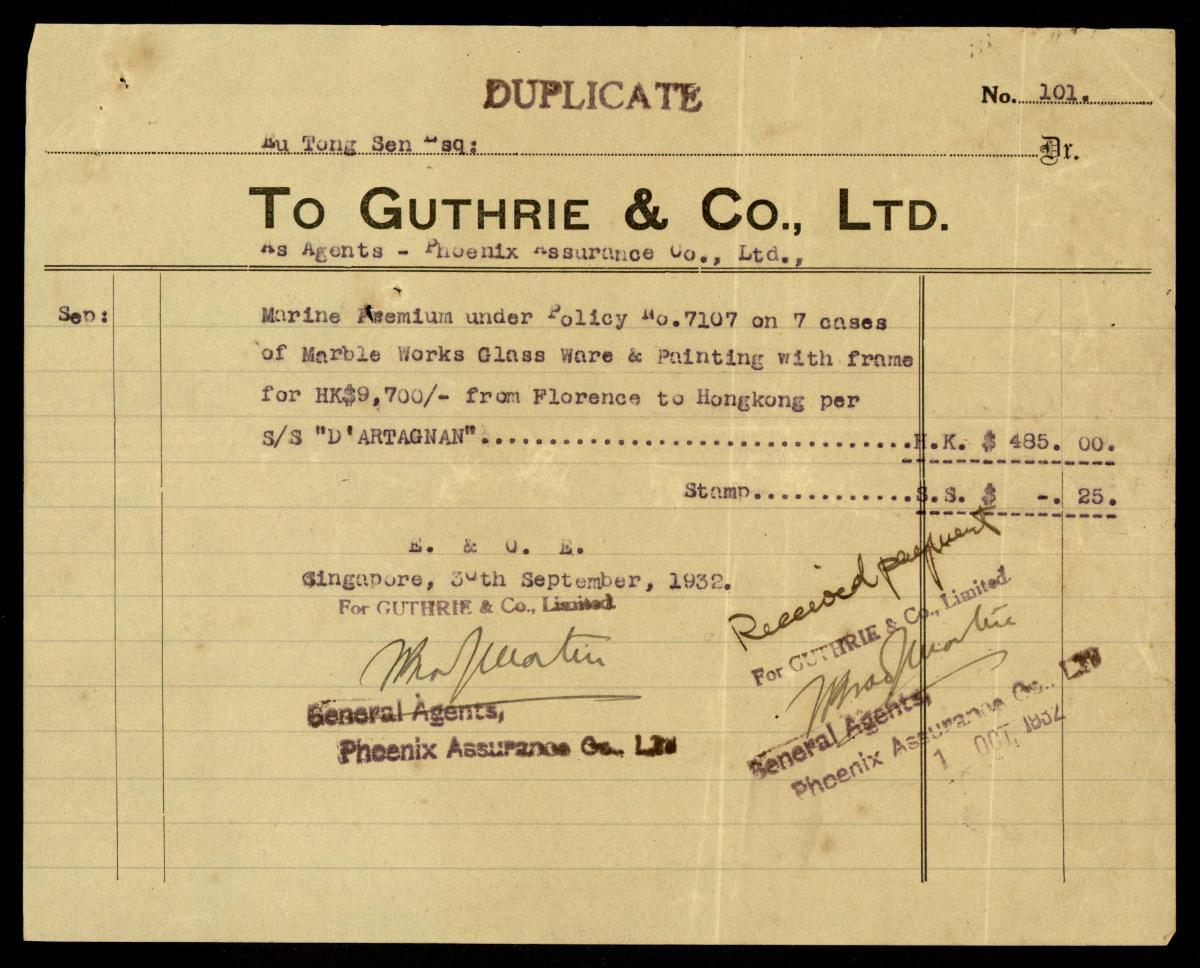 DUPLICATE
No. 101.
Eu Tong Sen Esq:
Dr.
TO GUTHRIE & CO., LTD.
As Agents - Phoenix Assurance Co., Ltd.,
Sep:
Marine Premium under Policy No.7107 on 7 cases
of Marble Works Glass Ware & Painting with frame
for HK$9,700/- from Florence to Hongkong per
S/S "D'ARTAGNAN"................................H.K. $ 485. 00.
Stamp............S.S. $ -. 25.
E. & O. E.
Singapore, 30th September, 1932.
For GUTHRIE & Co., Limited.
General Agents,
Phoenix Assurance Co., LTD
Received payment
For GUTHRIE & Co., Limited.
General Agents,
Phoenix Assurance Co., LTD
1 OCT, 1932